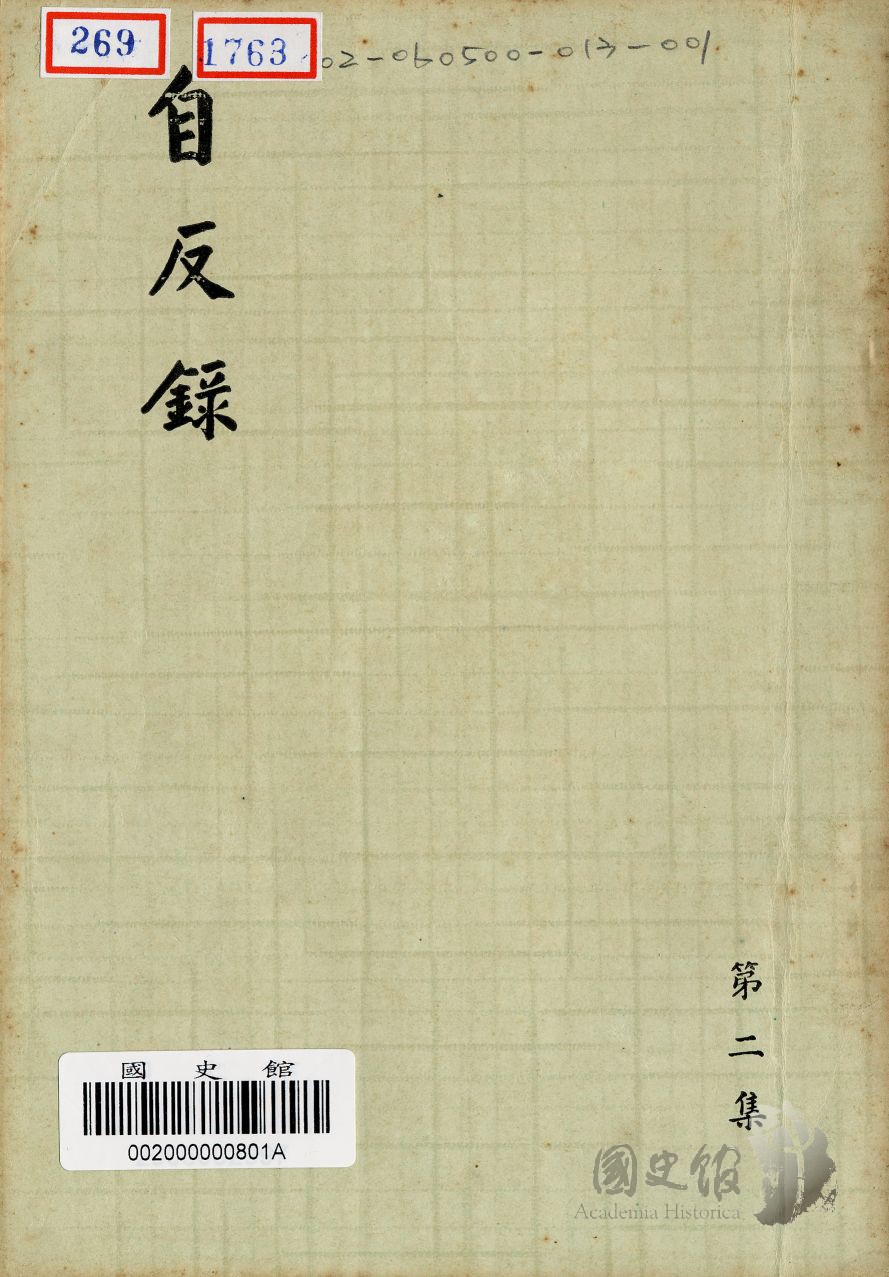 269
1763
02-060500-013-001
自反錄
第二集
國史館
002000000801A
國史館
Academia Historica